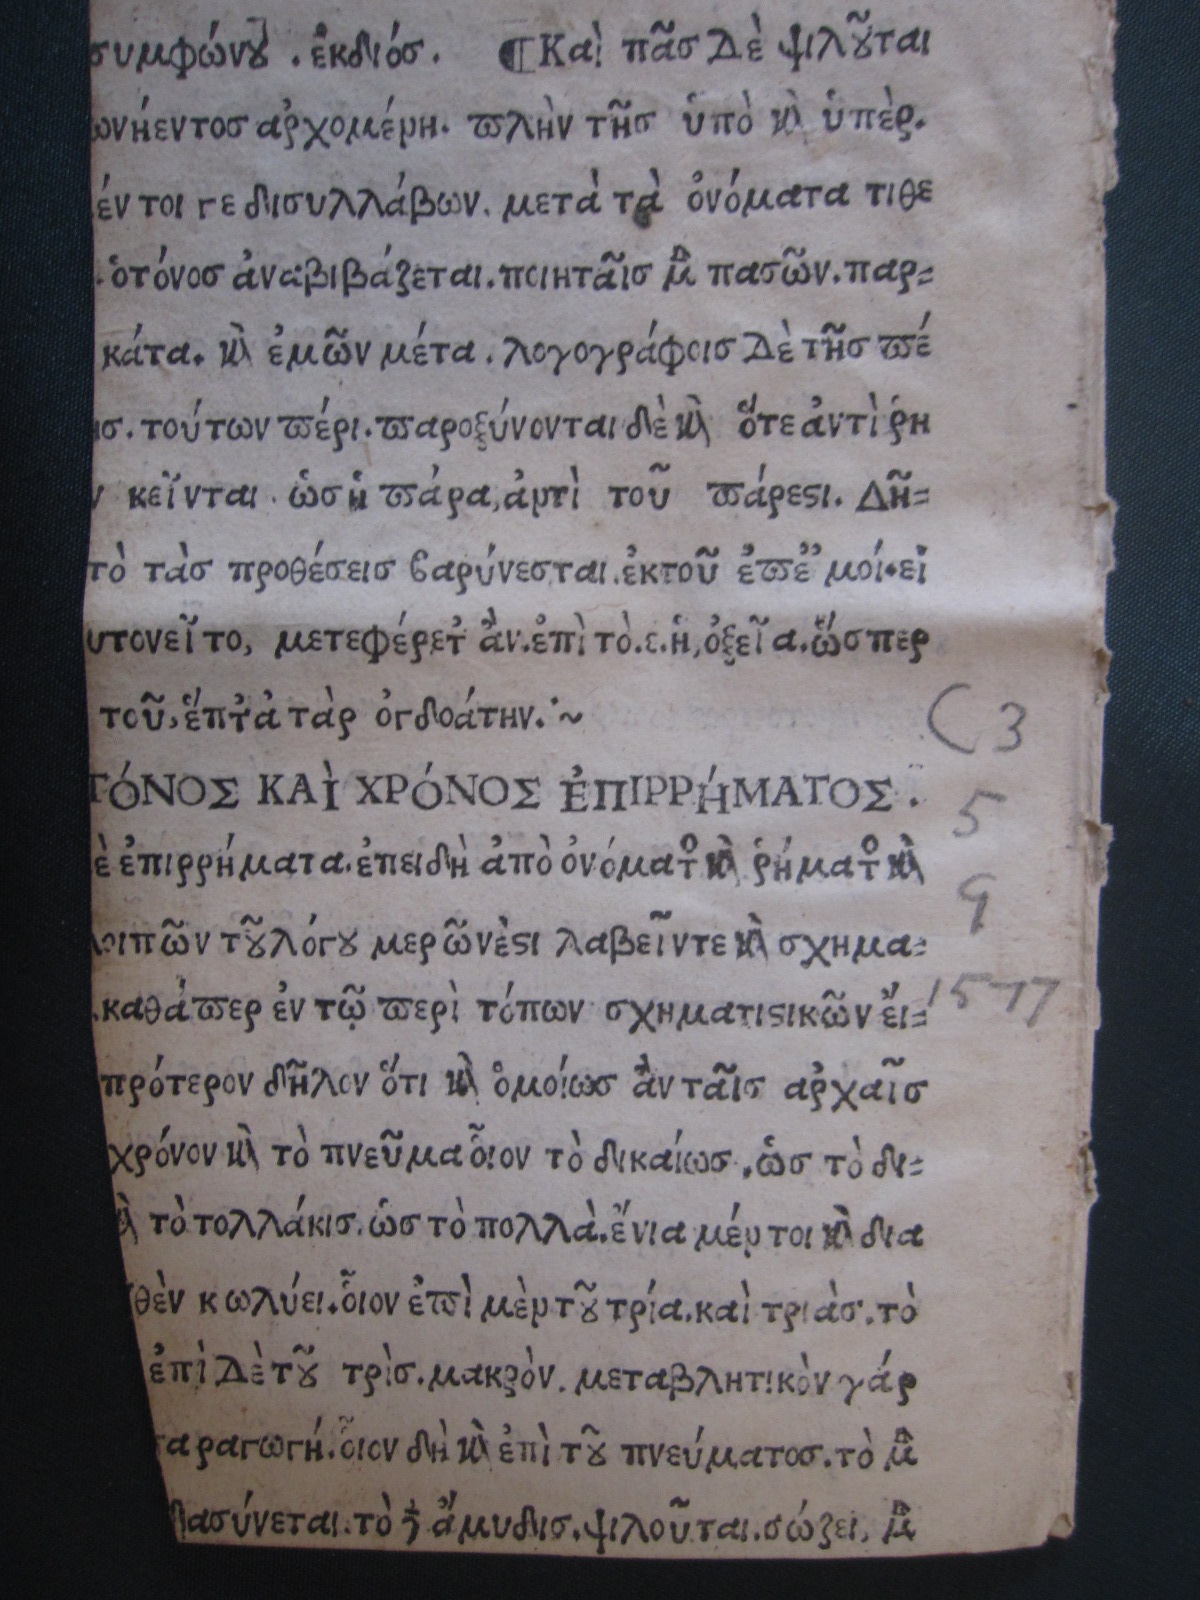 συμφώνȣ . ἐκδιόσ. ¶ Καὶ πᾶσ Δὲ ψιλȣ͂ται
ωνήεντοσ αρχομένη. ϖλὴν τῆσ ὑπὸ ϗ̀ ὑπὲρ.
έν τοι γε δισυλλάβων. μετὰ τὰ ὀνόματα τιθε
ὁτόνοσ ἀναβιβάζεται. ποιηταῖσ μ̂ πασῶν. παρ=
κάτα. ϗ̀ ἐμῶν μέτα . λογογράφοισ Δὲ τῆσ ϖέ
ισ. τούτων ϖέρι. ϖαροξύνονται δὲ ϗ̀ ὅτε ἀντὶ ῥη
ν κεῖνται . ὡσ ἡ ϖάρα, ἀντὶ τοῦ ϖάρεϛι. Δῆ=
τὸ τὰσ προθέσεισ βαρύνεσται. ἐκτοῦ ἐϖε῎ μοί. εἰ
υτονεῖτο, μετεφέρετ̓ ἂν. ἐπὶ τὸ. ε. ἡ, ὀξεῖα. ὥσπερ
τοῦ, ἕπτ̓ ἀτὰρ ὀγδοάτην. ~
ΤΌΝΟΣ ΚΑῚ ΧΡΌΝΟΣ ἘΠΙΡΡΉΜΑΤΟΣ .
ὲ ἐπιρρήματα. ἐπειδὴ ἀπὸ ὀνόματͦ ϗ̀ ῥήματͦ ϗ̀
λοιπῶν τȣ͂ λόγȣ μερῶν ἐϛὶ λαβεῖν τε ϗ̀ σχημα=
. καθάϖερ ἐν τῷ ϖερὶ τόπων σχηματιϛικῶν εἴ=
πρότερον δῆλον ὅτι ϗ̀ ὁμοίωσ ἂν ταῖσ αρχαῖσ
χρόνον ϗ̀ τὸ πνεῦμα οἷον τὸ δικαίωσ, ὡσ τὸ δι=
ϗ̀ τὸ τολλάκισ. ὡσ τὸ πολλὰ. ἔνια μέν τοι ϗ̀ δια
θὲν κωλύει. οἷον ἐϖὶ μὲν τȣ͂ τρία. καὶ τριὰσ. τὸ
ἐπὶ Δὲ τȣ͂ τρὶσ. μακρὸν. μεταβλητικὸν γάρ
παραγωγή. οἷον δὴ ϗ̀ ἐπὶ τȣ͂ πνεύματοσ. τὸ μ̂
δασύνεται. τὸ ἄμυδισ. ψιλοῦται. σώζει, μ̂
C 3
5
9
15-17